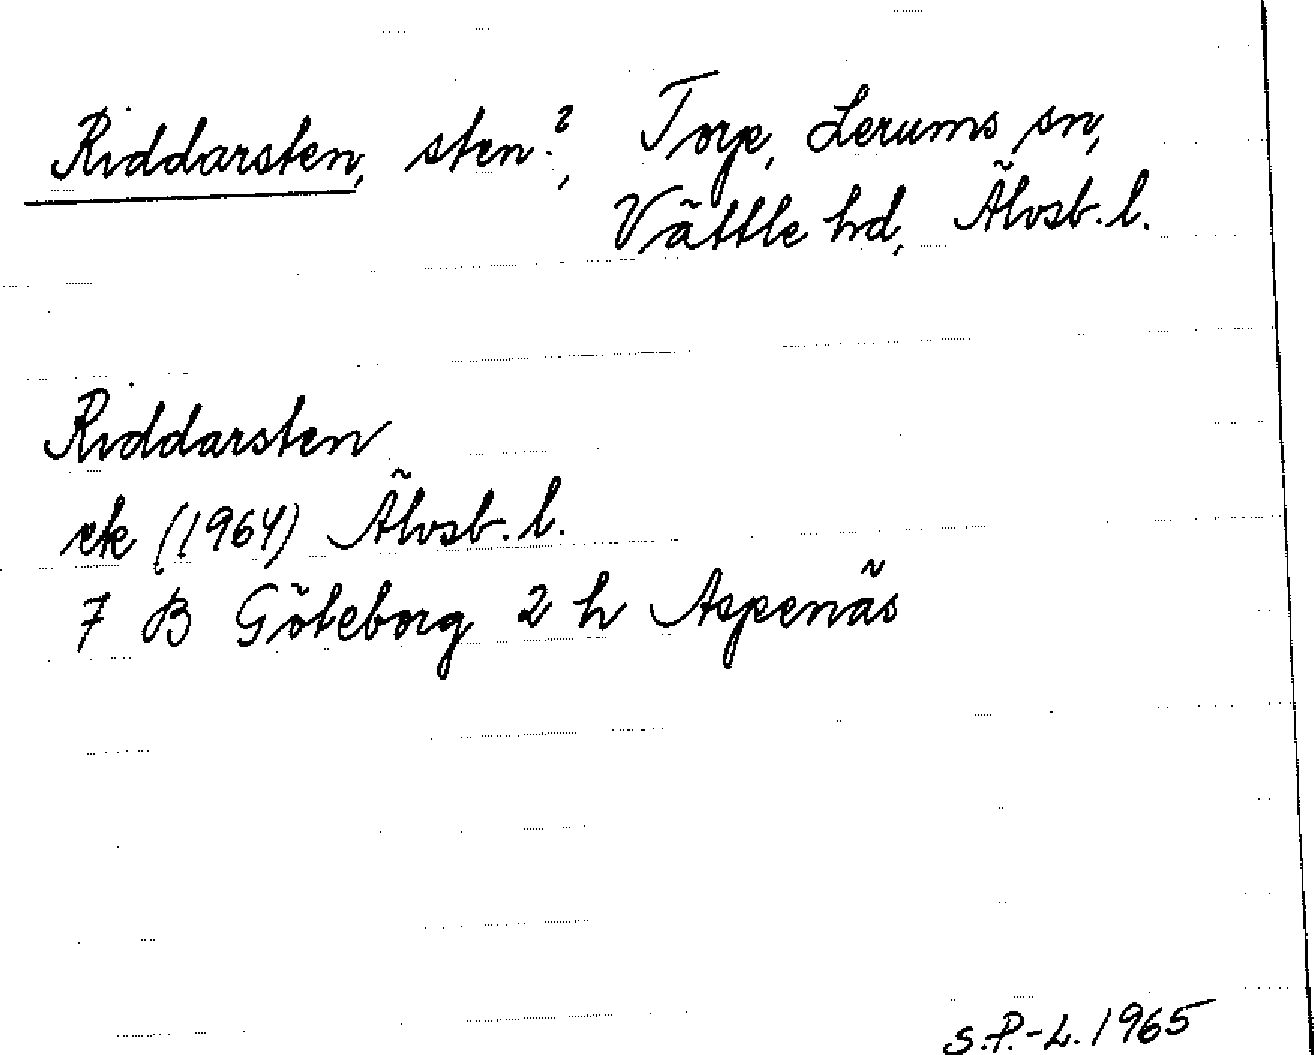 Riddarsten, sten?, Torp, Lerums sn,
Vättle hd, Älvsb. l.
Riddarsten
ek (1964) Älvsb. l.
7 B Göteborg 2 h Aspenäs
S.P.-L. 1965